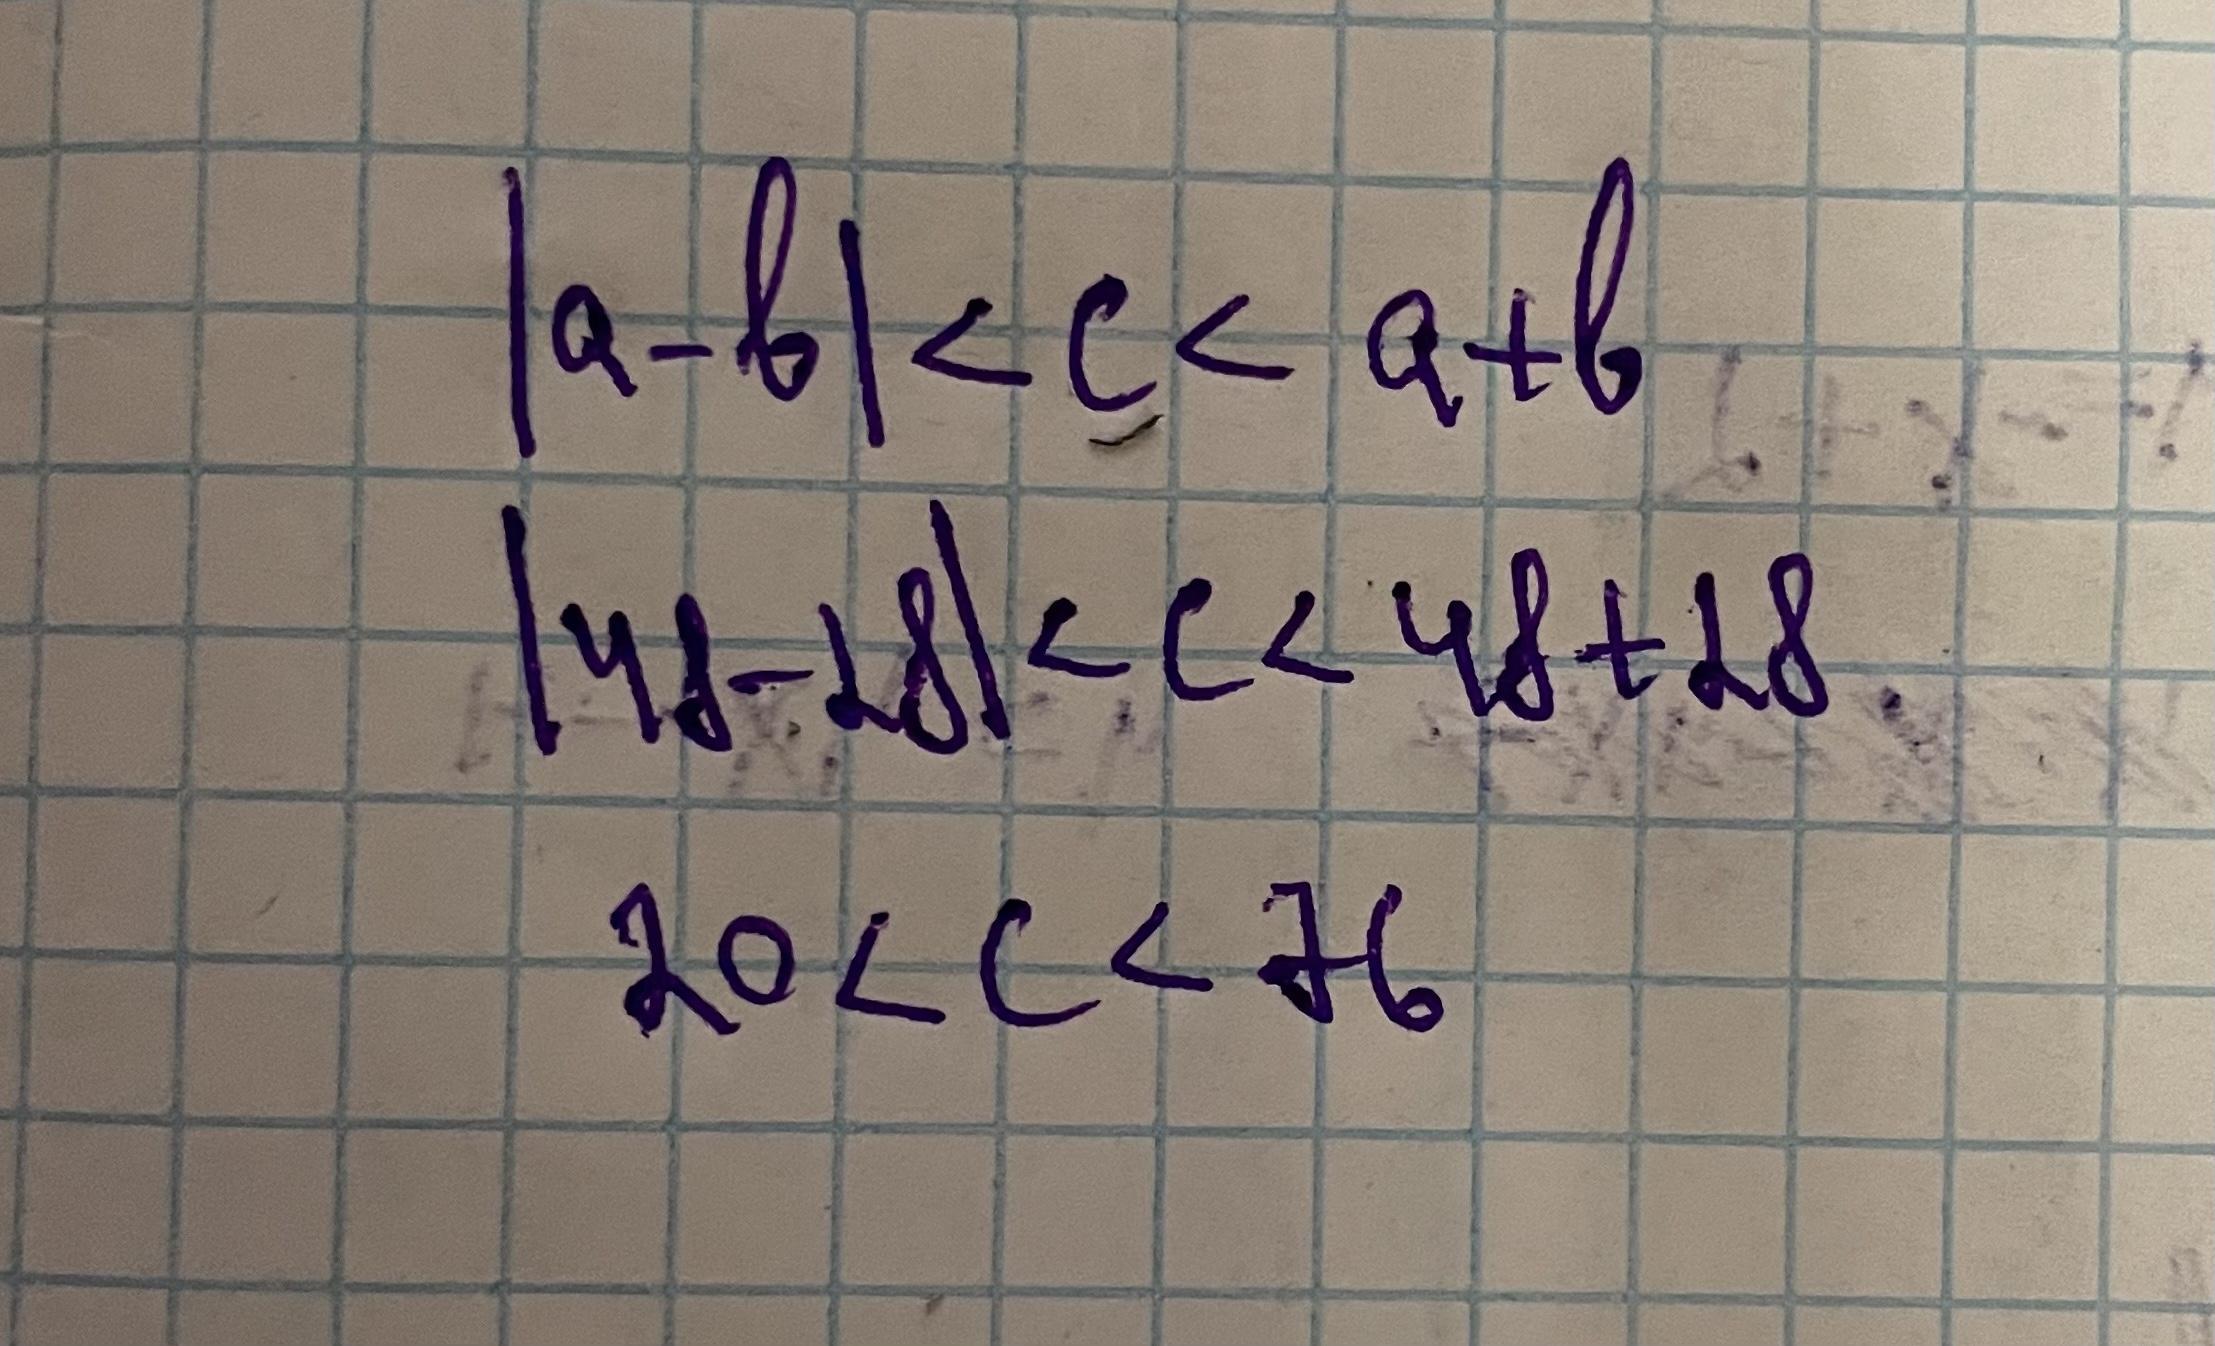 |a-b|<c<a+b
|48-28|<c<48+28
20<c<76